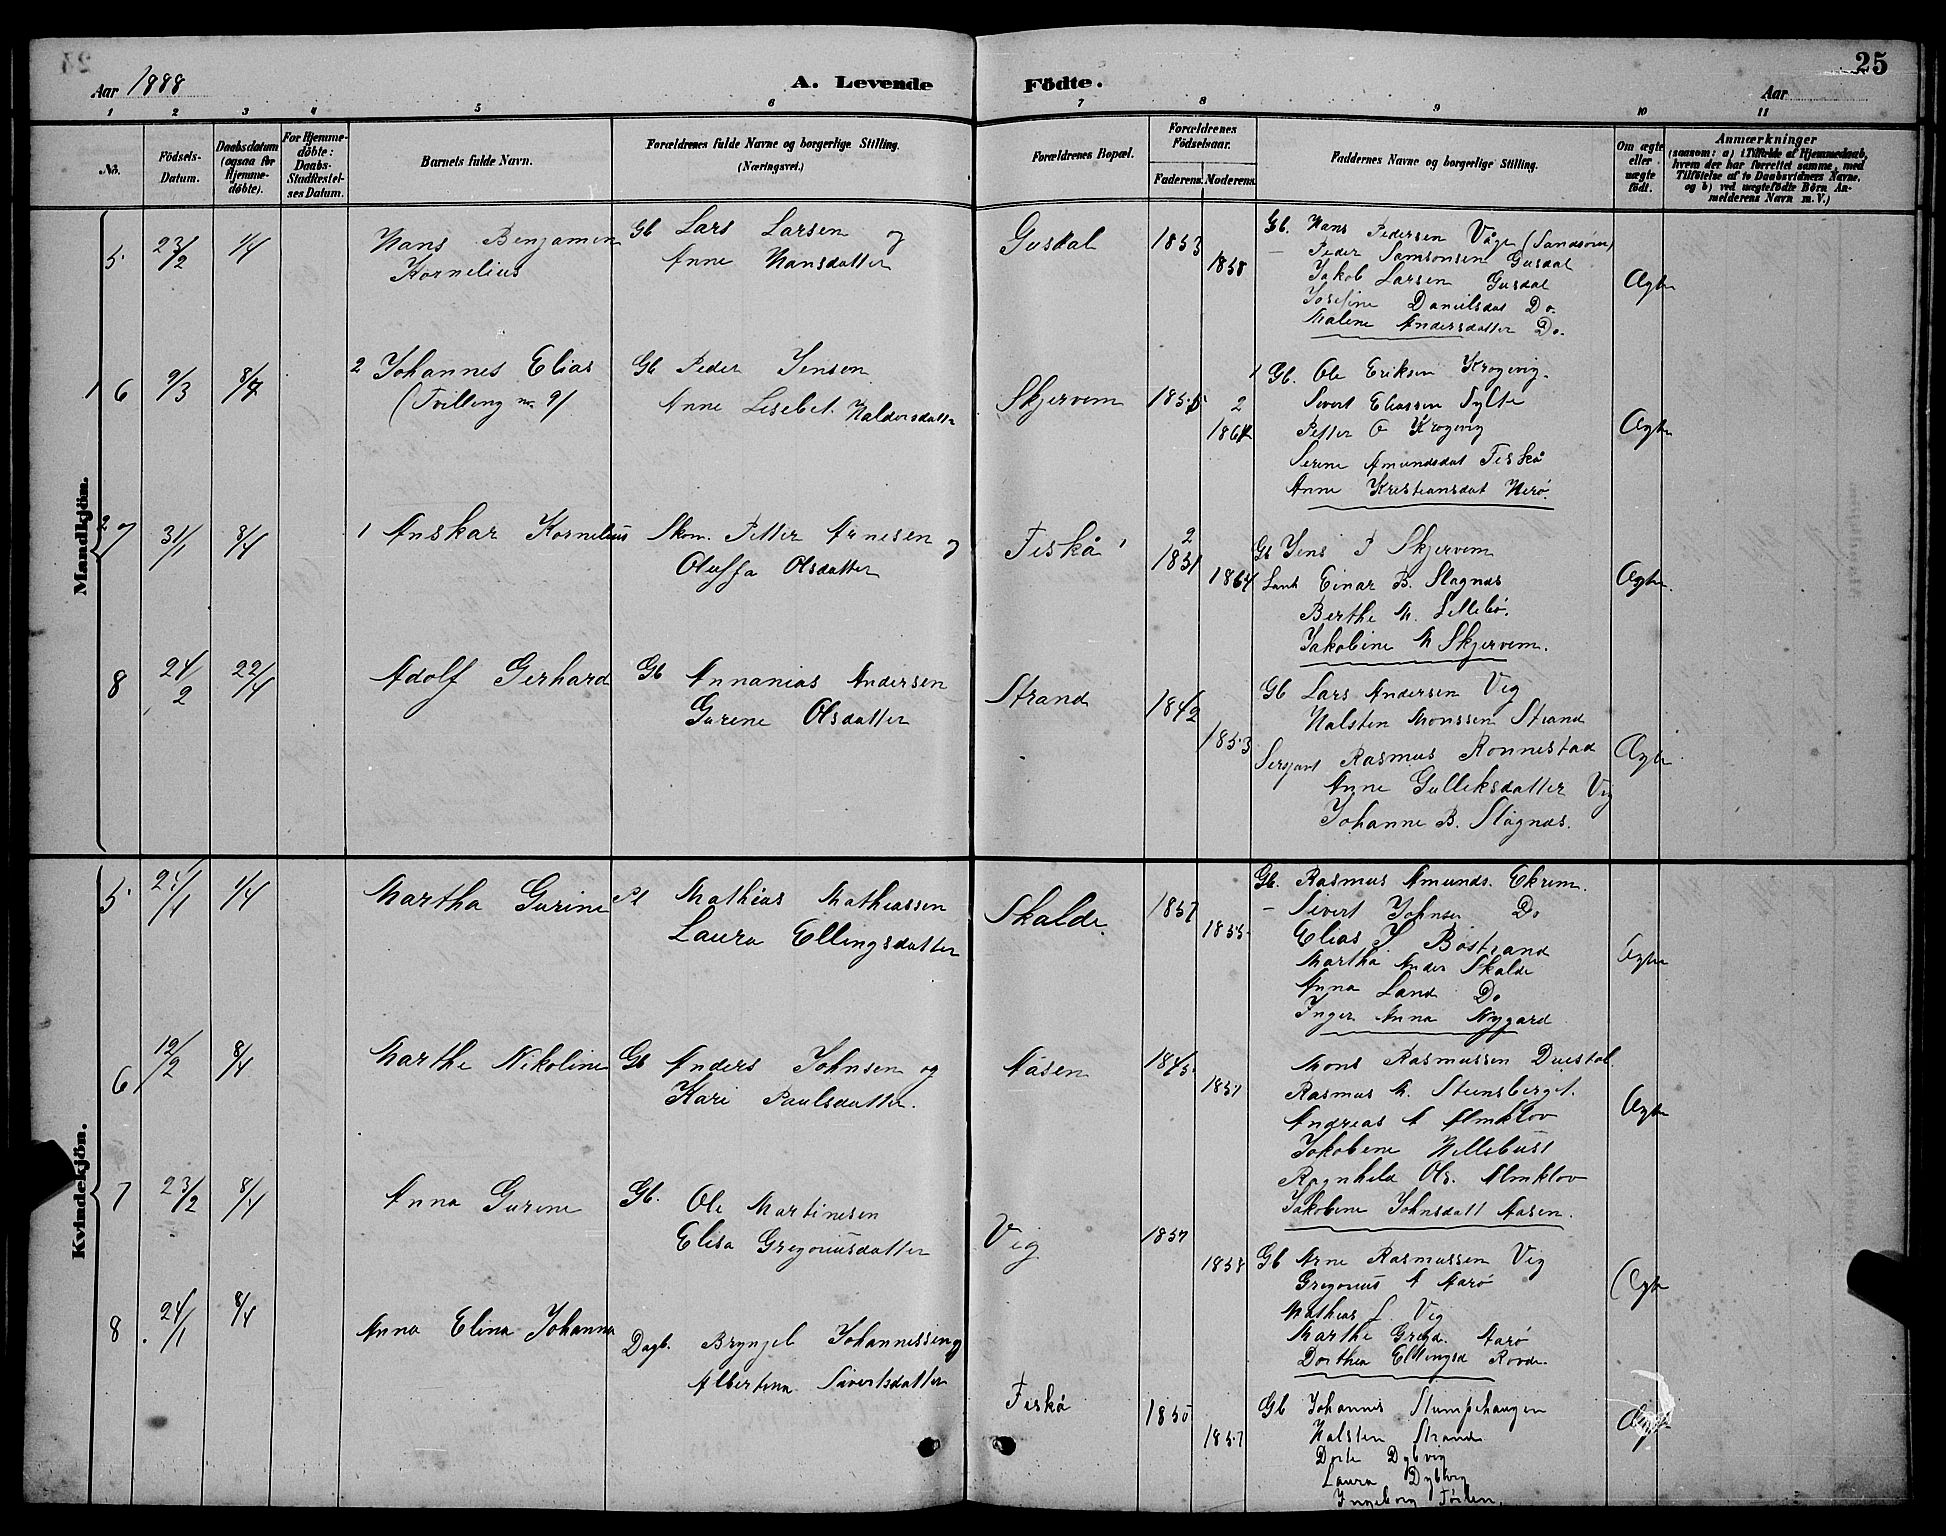 25
Aar 1888
A. Levende Födte.
Aar
1 2 3 4 5 6 7 8 9 10 11
No.
Födsels-Datum.
Daabsdatum (ogsaa for Hjemme-döbte).
For Hjemme-döbte: Daabs-Stadfæstel-ses Datum.
Barnets fulde Navn.
Forældrenes fulde Navne og borgerlige Stilling. (Næringsvei.)
Forældrenes Bopæl.
Forældrenes Födselsaar.
Faderens. Moderens.
Faddernes Navne og borgerlige Stilling.
Om ægte eller uægte födt.
Anmærkninger
(saasom: a) i Tilfælde af Hjemmedaab,
hvem der har forrettet samme, med
Tilföielse af to Daabsvidners Navne,
og b) ved uægtefödte Börn An-
melderens Navn m. V.)
Mandkjön.
5 23/2 1/4 Hans Benjamin Kornelius
Gb Lars Larsen og
Anne Hansdatter
Gusdal 1853 1858
Gb. Hans Pedersen Våge (Sandsöen)
— Peder Samsonsen Gusdal
Jakob Larsen Gusdal
Josefine Danielsdat Do
Malene Andersdatter Do
Ægte
6 9/3 8/4 2 Johannes Elias
(Tvilling no 9)
Gb Peder Jensen
Anne Lisebet Haldorsdatter
Skjervem 1855
Gb. Ole Eriksen Krogevig
Sivert Eliassen Sylte
Petter O Krogevig
Serine Amundsdat Fiskå
Anne Kristiansdat Herö
Ægte
7 31/1 8/4 1 Anskar Kornelius
Skom. Petter Arnesen og
Oluffa Olsdatter
Fiskå 1851 1864
Gb Jens P Skjervem
Einar B. Slagnæs
Berthe M. Lillebö.
Jakobine M Skjervem.
Ægte
8 24/2 22/4 Adolf Gerhard
Gb Annanias Andersen
Gurene Olsdatter
Strand 1842 1853
Gb Lars Andersen Vig
Halsten Monssen Strand
Serjant Rasmus Ronnestad
Anne Gulleksdatter Vig
Johanne B. Slagnæs.
Ægte
Kvindekjön.
5 1/4 Martha Gurine
Mathias Mathiassen
Laura Ellingsdatter
Skalde. 1857 1855
Gb. Rasmus Amunds. Ekrem.
— Sivert Johnsen Do
Elias J Böstrand
Martha Anders Skalde
Anna Land Do
Inger Anna Nygard
Ægte
6 12/2 8/4 Marthe Nikoline
Gb Anders Johnsen og
Kari Paulsdatter.
Aasen 1845 1851
Mons Rasmussen Duestøl
Rasmus M. Steinsberget.
Andreas A Almklov
Jokobine Hillebust
Ragnhild Ols. Almklov
Jakobine Johnsdatt Aasen.
Ægte
7 23/2 8/4 Anna Gurine
Gb. Ole Martinesen
Elisa Gregoriusdatter
Vig 1857 1858
Gb Arne Rasmussen Vig
Gregorius A Aarö
Mathias L Vig
Marthe Greg. Aarö
Dorthea Ellingsd Rovde.
Ægte
8 24/1 8/4 Anna Elina Johanna
Dagb. Brynjel Johannessen og
Albertine Sivertsdatter
Fiskå 1850 1857
Gb Johannes Slumpehaugen
Halsten Strand
Dorte Dybvig
Laura Dybvig
Ingeborg
Ægte